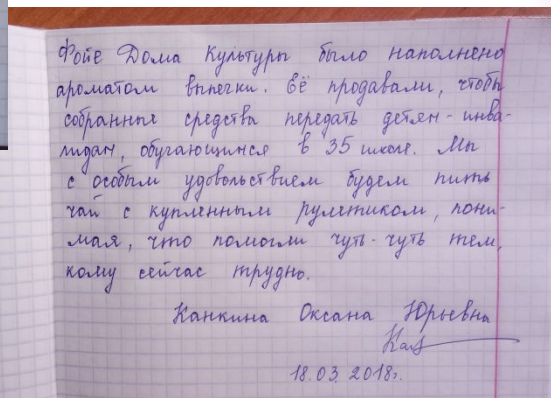 Фойе Дома Культуры было наполнено
ароматом выпечки. Её продавали, чтобы
собранные средства передать детям-инва-
лидам, обучающимся в 35 школе. Мы
с особым удовольствием будем пить
чай с купленным рулетиком, пони-
мая, что помогли чуть-чуть тем,
кому сейчас трудно.
Канкина Оксана Юрьевна
18.03.2018г.